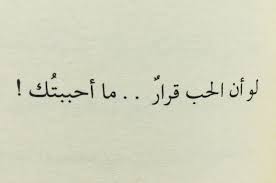 لو أن الحب قرارٌ . . ما أحببتُك !